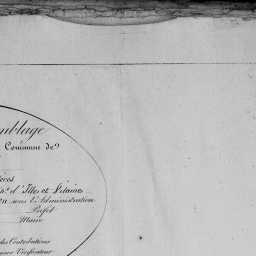 mblage
Commune de
d'Ille et Vilaine
sous l'Administration
Préfet
Maire
des Contributions
Vérificateur